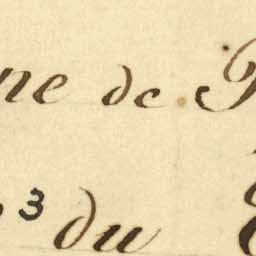 ne de
3 du